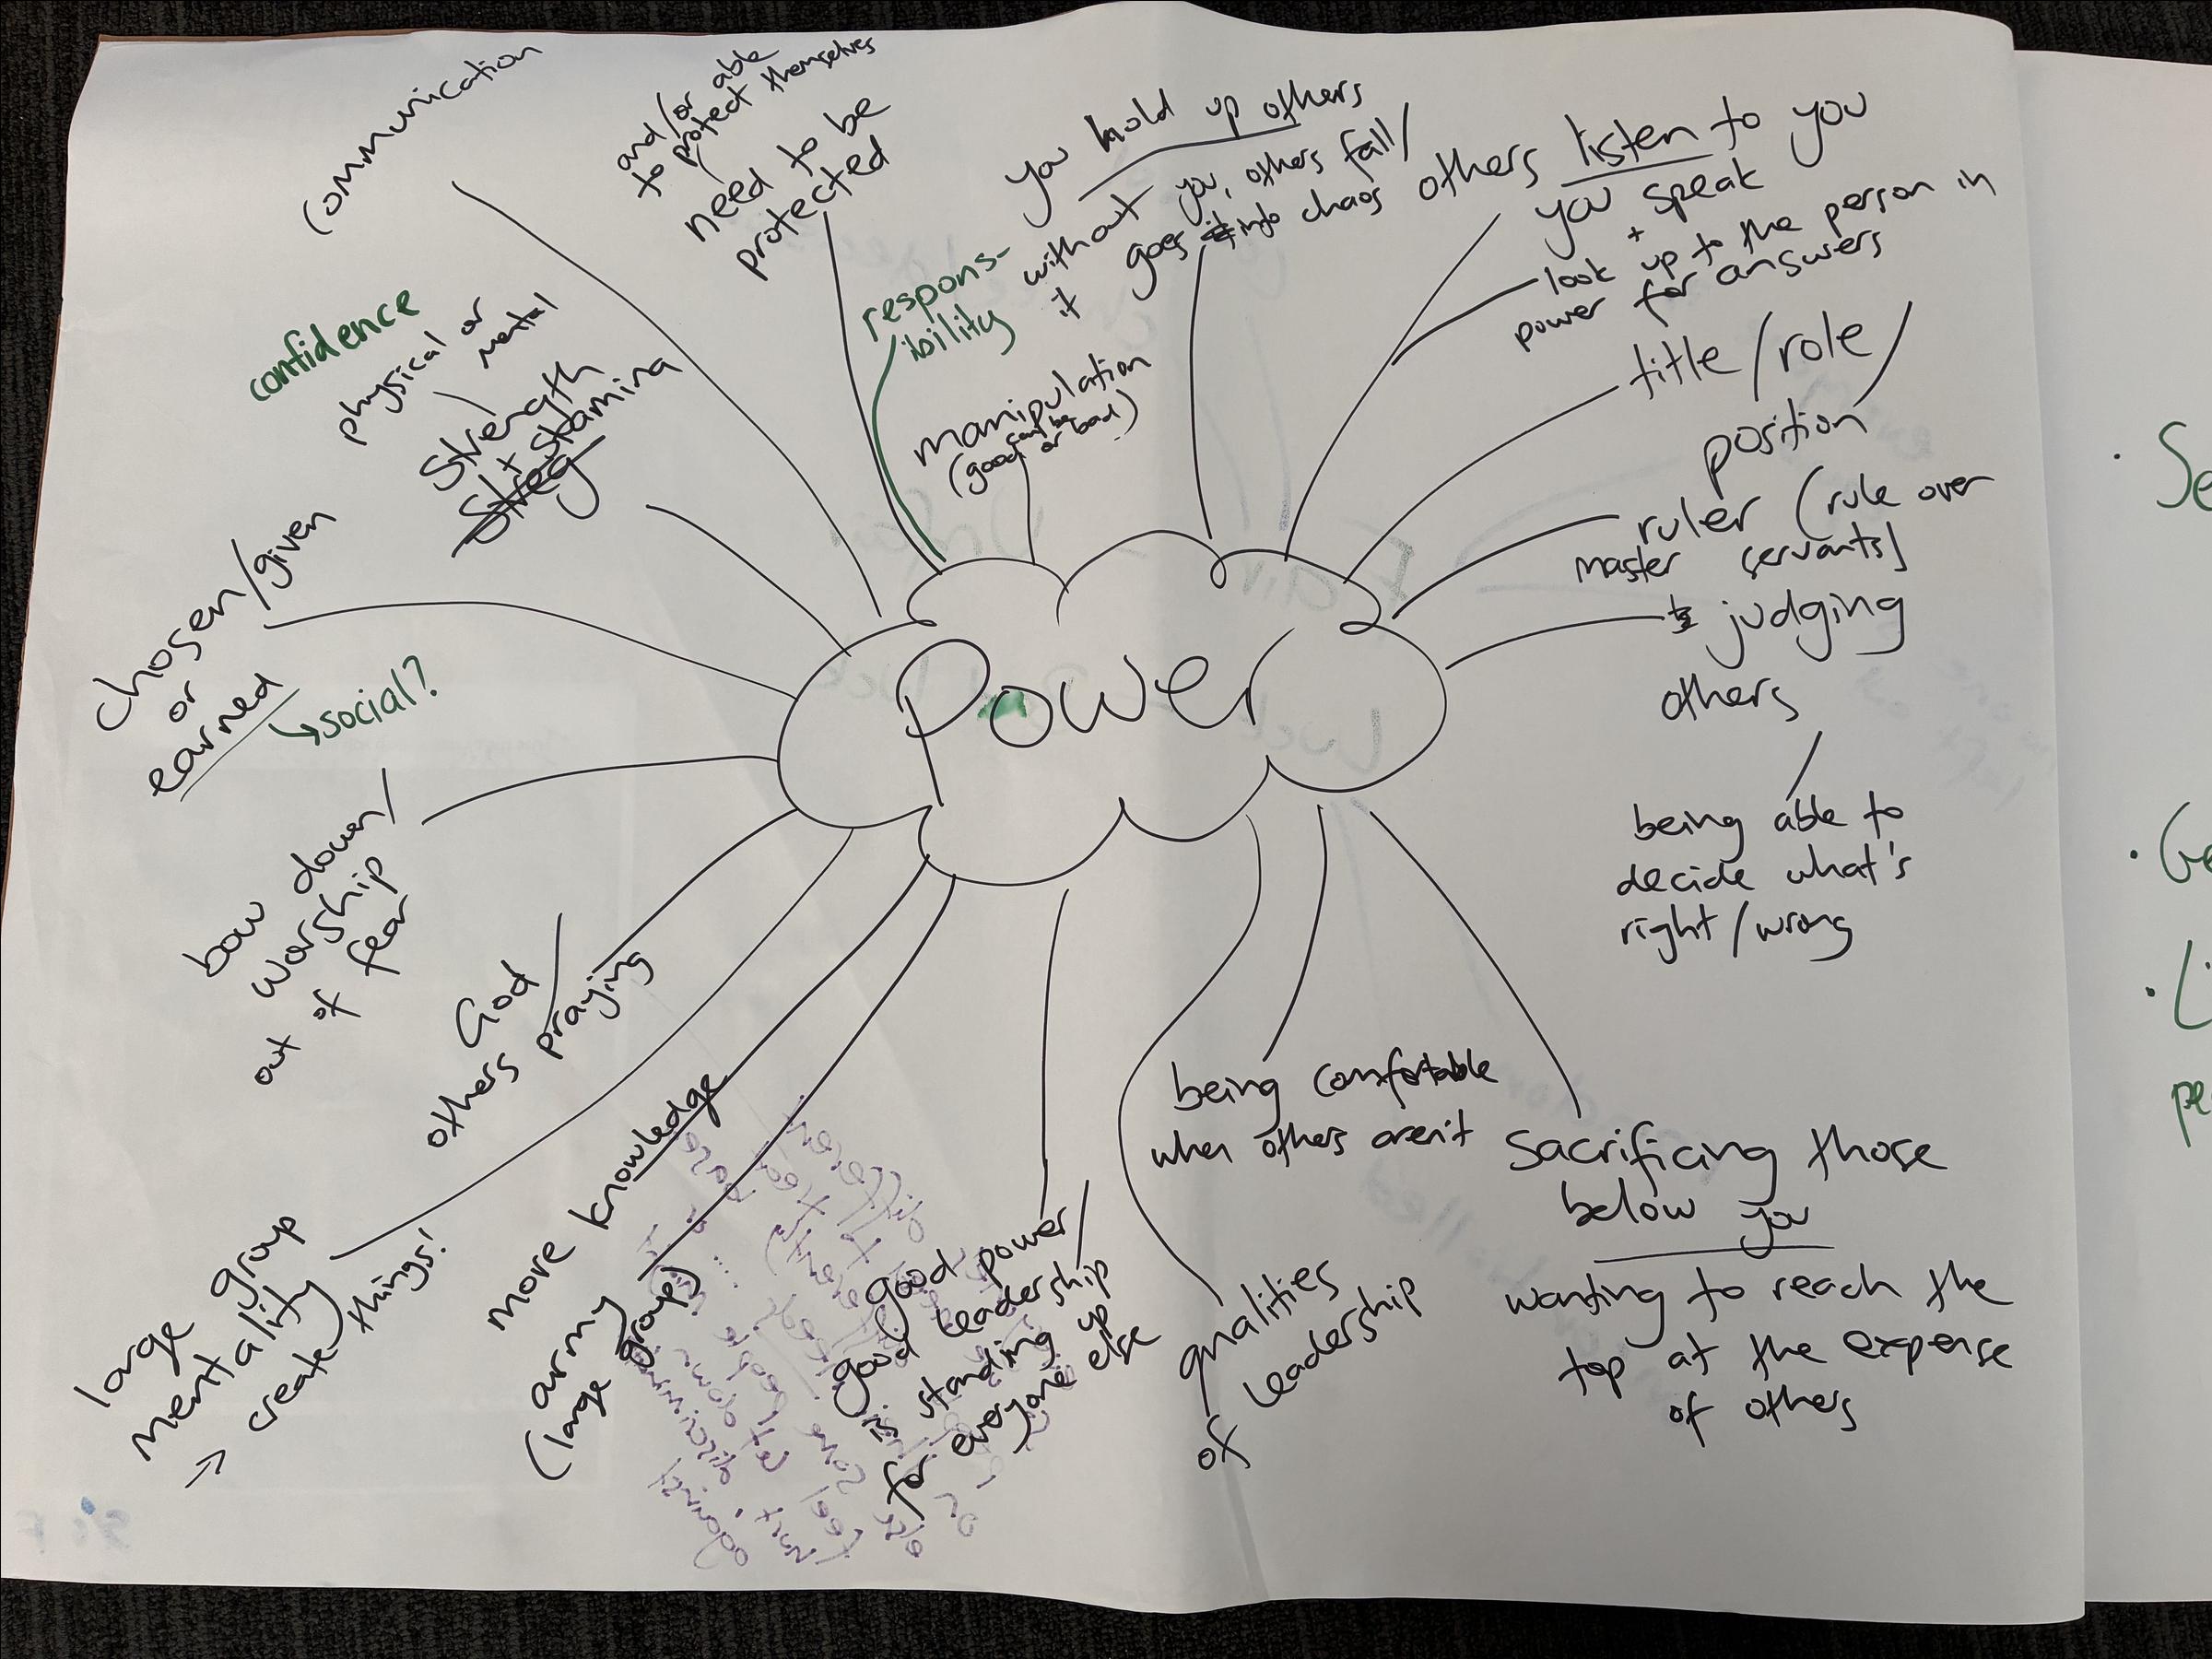 Power
communication
and/or able
to protect themselves
need to be
protected
respons-
ibility
manipulation
can be
(good or bad)
you hold up others
without you, others fall/
it goes into chaos
others listen to you
you speak
+
look up to the person in
power for answers
title/role/
position
ruler (rule over
master servants)
judging
others
being able to
decide what's
right/wrong
sacrificing those
below you
wanting to reach the
top at the expense
of others
being comfortable
when others aren't
qualities
of leadership
good power/
good leadership
is standing up
for everyone else
army
(large groups)
more knowledge
large group
mentality
→ create things!
God/
others praying
bow down/
worship
out of fear
chosen/given
or
earned
↳ social?
confidence
physical or
mental
Strength
+ stamina
Streg
· Se
· Ge
· L
pe